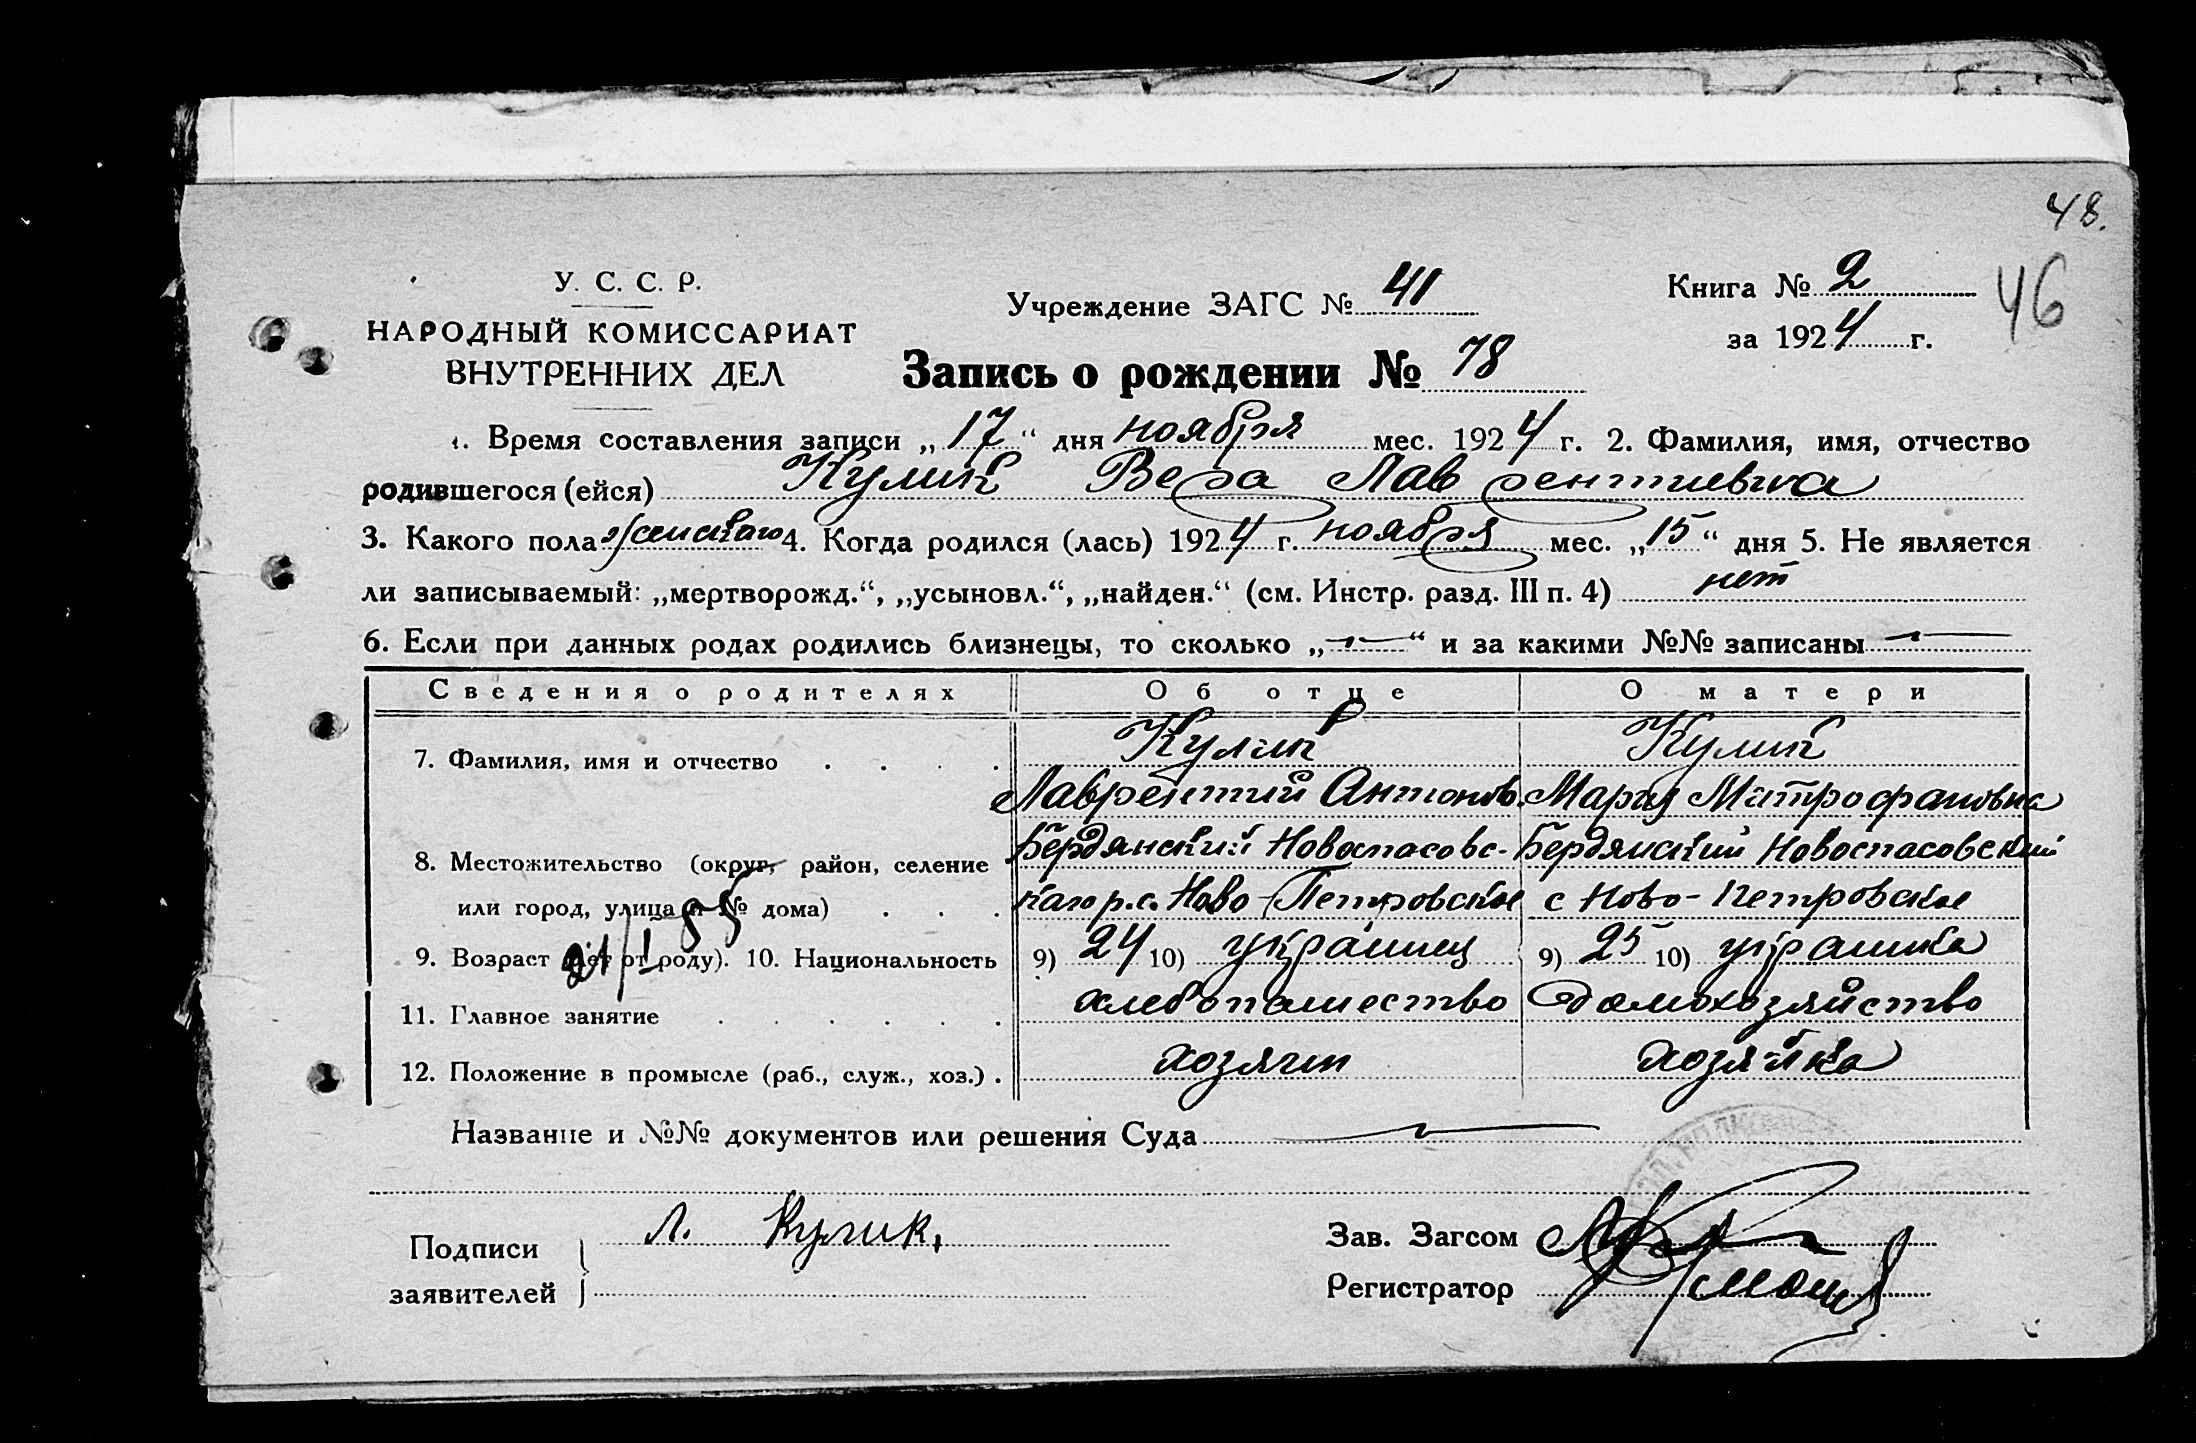 48.
У. С. С. Р.
Учреждение ЗАГС № 41
Книга № 2
46
НАРОДНЫЙ КОМИССАРИАТ
за 1924 г.
ВНУТРЕННИХ ДЕЛ
Запись о рождении № 78
1. Время составления записи „17“ дня ноября мес. 1924 г. 2. Фамилия, имя, отчество
родившегося (ейся) Кулик Вера Лаврентиевна
3. Какого пола женскаго 4. Когда родился (лась) 1924 г. ноября мес. „15“ дня 5. Не является
ли записываемый: „мертворожд.“, „усыновл.“, „найден.“ (см. Инстр. разд. III п. 4) нет
6. Если при данных родах родились близнецы, то сколько „—“ и за какими №№ записаны —
Сведения о родителях Об отце О матери
7. Фамилия, имя и отчество . . . . Кулик Кулик
Лаврентий Антонов. Мария Митрофановна
8. Местожительство (округ, район, селение Бердянский Новоспасовс- Бердянский Новоспасовский
или город, улица и № дома) . . . каго р. с. Ново-Петровское с Ново-Петровское
9. Возраст (лет от роду). 10. Национальность 9) 24 10) украинец 9) 25 10) украинка
21/I 85
11. Главное занятие . . . . . . хлебопашество домохозяйство
12. Положение в промысле (раб., служ., хоз.) . хозяин хозяйка
Название и №№ документов или решения Суда —
Подписи
заявителей
Л. Кулик,
Зав. Загсом
Регистратор